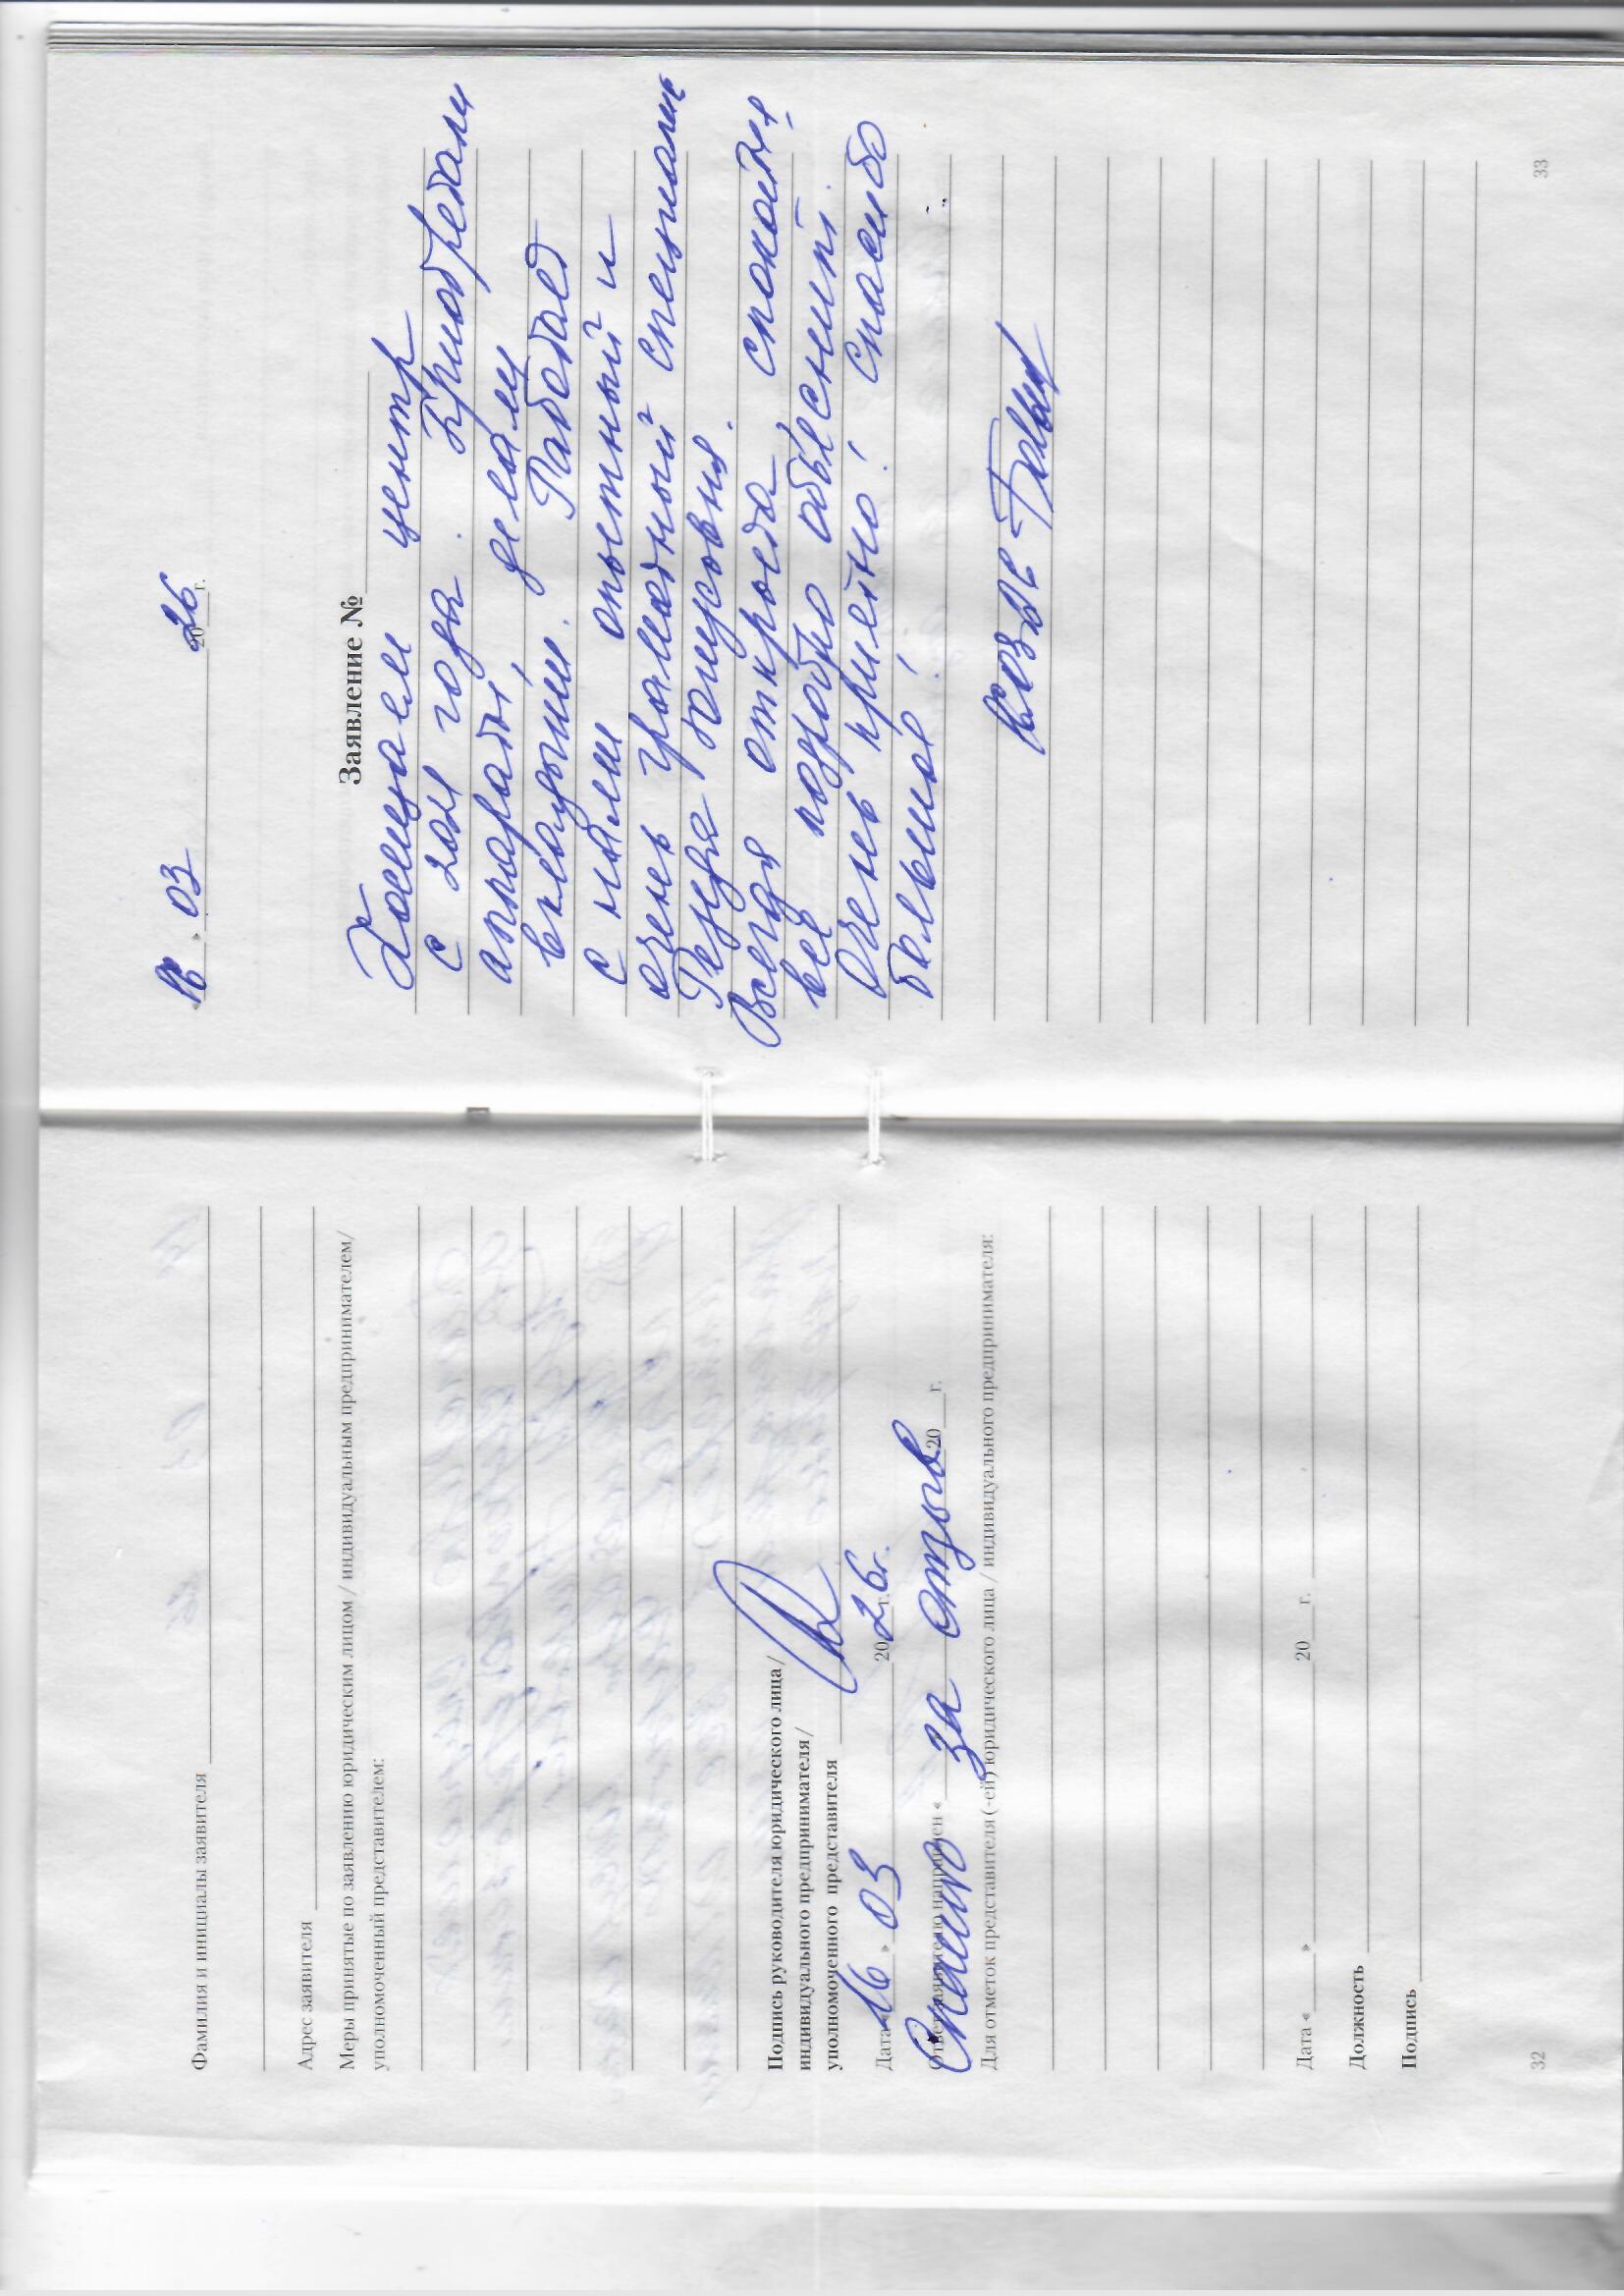 Фамилия и инициалы заявителя
Адрес заявителя
Меры принятые по заявлению юридическим лицом / индивидуальным предпринимателем/
уполномоченный представителем:
Подпись руководителя юридического лица/
индивидуального предпринимателя/
уполномоченного представителя
Дата « 16 » 03 2026 г.
Ответ заявителю направлен « 20 г.
Спасибо за отзыв
Для отметок представителя (-ей) юридического лица / индивидуального предпринимателя:
Дата « » 20 г.
Должность
Подпись
32
«16» 03 2026 г.
Заявление №
Посещаем центр
с 2021 года. Приобретали
аппараты, делали
вкладыши. Работает
с нами опытный и
очень грамотный специалист
Резеда Юнусовна.
Всегда открыта, спокойна,
всё подробно объяснит.
Очень приятно! Спасибо
большое!
33